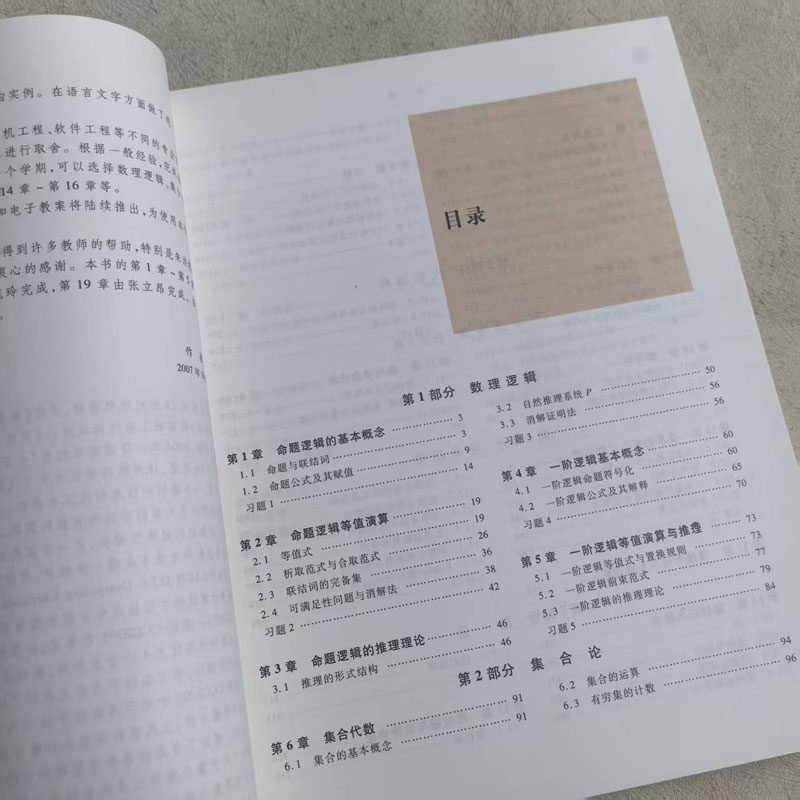 实例。在语言文字方面做了
机工程、软件工程等不同的专业
进行取舍。根据一般经验,完
个学期,可以选择数理逻辑、
14章~第16章等。
和电子教案将陆续推出,为使用本
得到许多教师的帮助,特别是朱
衷心的感谢。本书的第1章~第5
玲完成,第19章由张立昂完成。
。
作
2007年
目录
第1部分 数理逻辑
第1章 命题逻辑的基本概念 …… 3
1.1 命题与联结词 …… 3
1.2 命题公式及其赋值 …… 9
习题1 …… 14
第2章 命题逻辑等值演算 …… 19
2.1 等值式 …… 19
2.2 析取范式与合取范式 …… 26
2.3 联结词的完备集 …… 36
2.4 可满足性问题与消解法 …… 38
习题2 …… 42
第3章 命题逻辑的推理理论 …… 46
3.1 推理的形式结构 …… 46
3.2 自然推理系统P …… 50
3.3 消解证明法 …… 56
习题3 …… 56
第4章 一阶逻辑基本概念 …… 60
4.1 一阶逻辑命题符号化 …… 60
4.2 一阶逻辑公式及其解释 …… 65
习题4 …… 70
第5章 一阶逻辑等值演算与推理 …… 73
5.1 一阶逻辑等值式与置换规则 …… 73
5.2 一阶逻辑前束范式 …… 77
5.3 一阶逻辑的推理理论 …… 79
习题5 …… 84
第2部分 集合论
第6章 集合代数 …… 91
6.1 集合的基本概念 …… 91
6.2 集合的运算 …… 94
6.3 有穷集的计数 …… 96